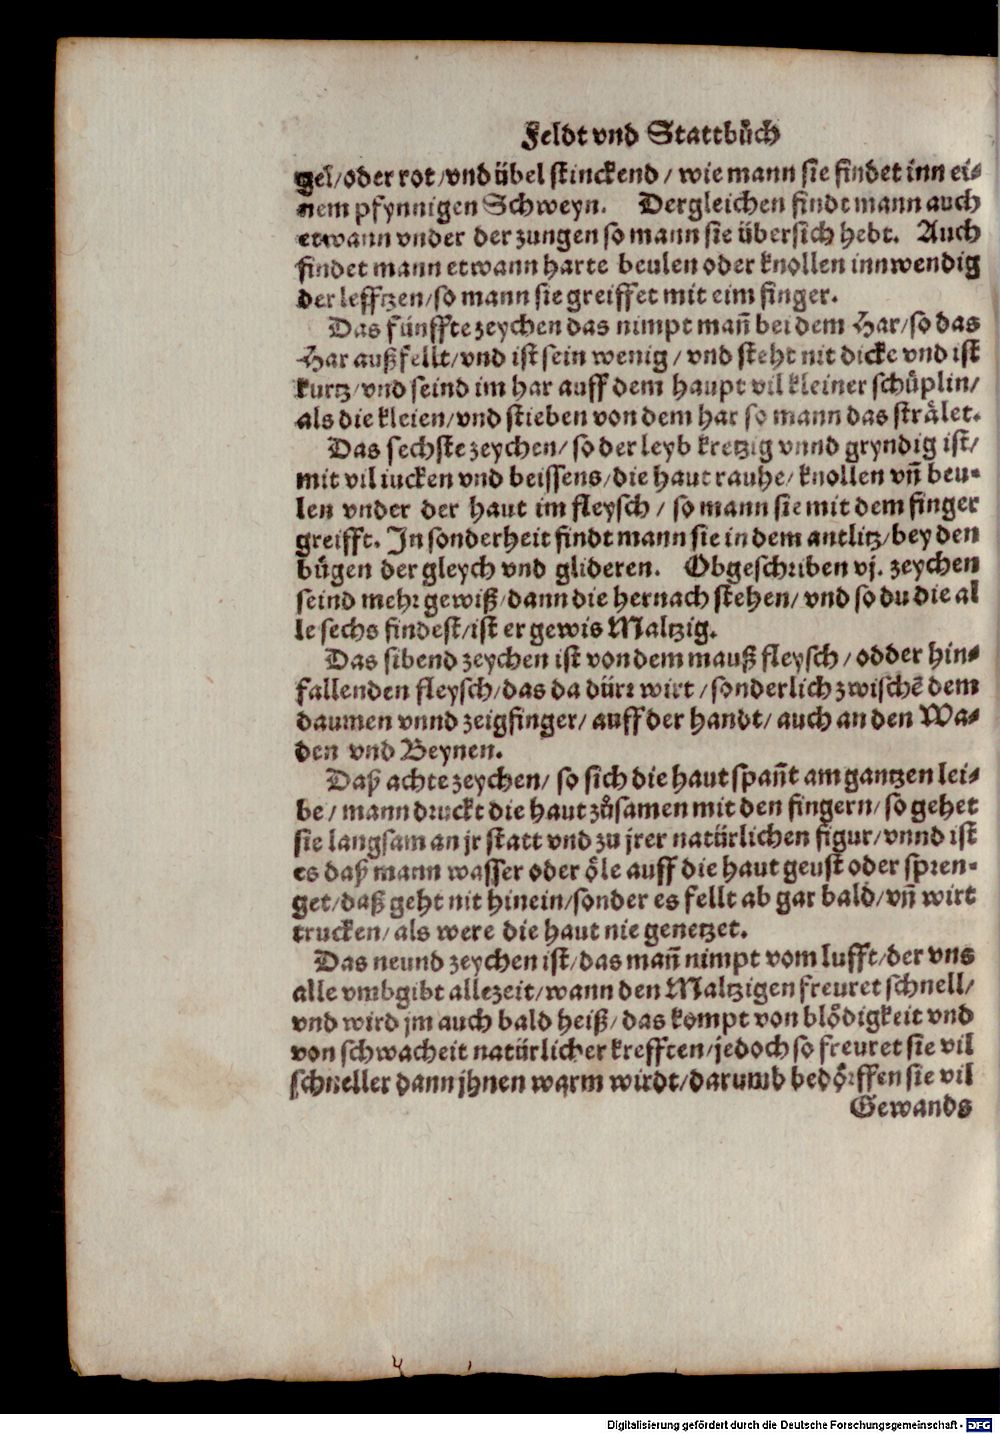 Feldt vnd Stattbůch
gel/oder rot/vnd übel stinckend/ wie mann sie findet inn ei-
nem pfynnigen Schweyn. Dergleichen findt mann auch
etwann vnder der zungen so mann sie übersich hebt. Auch
findet mann etwann harte beulen oder knollen innwendig
der lefftzen/so mann sie greiffet mit eim finger.
Das fünffte zeychen das nimpt mañ bei dem Har/so das
Har außfellt/vnd ist sein wenig/ vnd steht nit dicke vnd ist
kurtz/vnd seind im har auff dem haupt vil kleiner schüplin/
als die kleien/vnd stieben von dem har so mann das strälet.
Das sechste zeychen/ so der leyb kretzig vnnd gryndig ist/
mit vil iucken vnd beissens/die haut rauhe/ knollen vñ beu-
len vnder der haut im fleysch/ so mann sie mit dem finger
greifft. In sonderheit findt mann sie in dem antlitz/bey den
bügen der gleych vnd glideren. Obgeschriben vj. zeychen
seind mehr gewiß/dann die hernach stehen/ vnd so du die al
le sechs findest/ist er gewis Maltzig.
Das sibend zeychen ist von dem mauß fleysch/ odder hin-
fallenden fleysch/das da dürr wirt/sonderlich zwischē dem
daumen vnnd zeigfinger/ auff der handt/ auch an den Wa-
den vnd Beynen.
Daß achte zeychen/ so sich die haut spañt am gantzen lei-
be/ mann druckt die haut zůsamen mit den fingern/ so gehet
sie langsam an jr statt vnd zu jrer natürlichen figur/vnnd ist
es daß mann wasser oder öle auff die haut geust oder spren-
get/daß geht nit hinein/sonder es fellt ab gar bald/vñ wirt
trucken/als were die haut nie genetzet.
Das neund zeychen ist/das mañ nimpt vom lufft/der vns
alle vmbgibt allezeit/wann den Maltzigen freuret schnell/
vnd wird jm auch bald heiß/das kompt von blödigkeit vnd
von schwacheit natürlicher krefften/jedoch so freuret sie vil
schneller dann jhnen warm wirdt/darumb bedörffen sie vil
Gewands
Digitalisierung gefördert durch die Deutsche Forschungsgemeinschaft - DFG